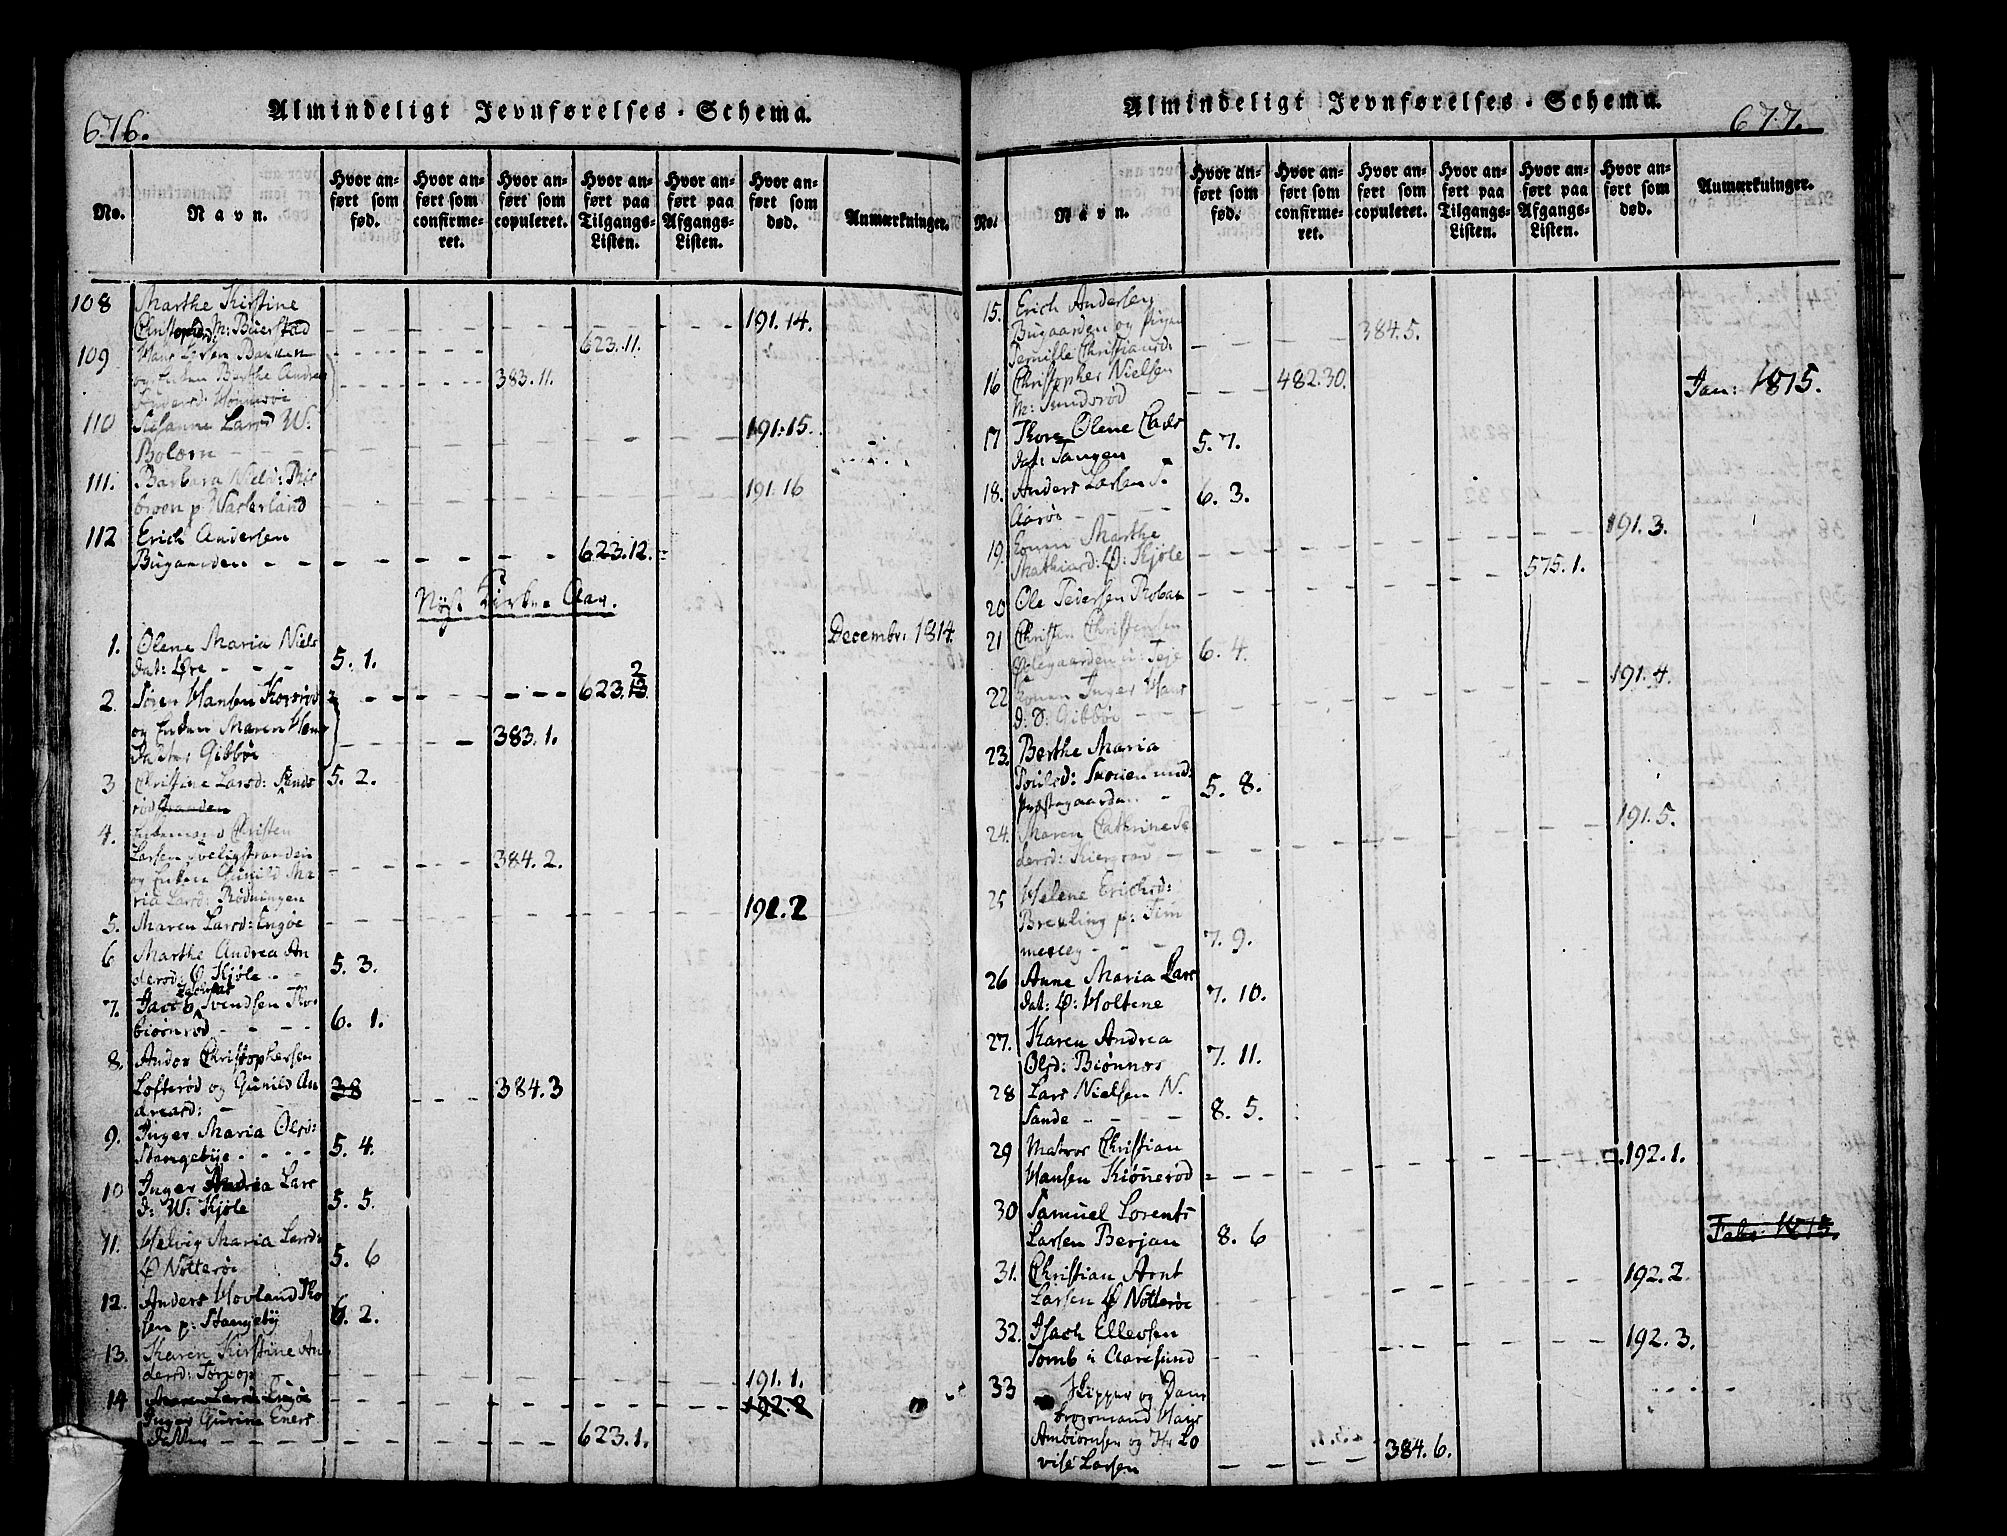 676.
Almindeligt Jevnførelses-Schema.
No.
Navn.
Hvor an-
ført som
fød.
Hvor an-
ført som
confirme-
ret.
Hvor an-
ført som
copuleret.
Hvor an-
ført paa
Tilgangs-
Listen.
Hvor an-
ført paa
Afgangs-
Listen.
Hvor an-
ført som
død.
Anmærkninger.
108 Marthe Kirstine
191. 14.
109
623. 11.
og Enken Berthe Andrea 383. 11.
110 Susanne Larsd W:
Bolærn 191. 15.
111. Barbara Niels:
191. 16
112 Erich Andersen
Bugaarden 623. 12.
Nyt Kirke Aar.
Decembr. 1814.
1. Olene Maria Niels
dat: Øre 5. 1.
2. Søren Hansen 623. 2
og Enken Maren Hans
383. 1.
3 Christine Larsd: Sunds
rød 5. 2.
4. Christen
Larsen
og Enken Gunild Ma 384. 2.
ria Larsd: Rødningen
5. Maren Larsd: Engøe 191. 2
6 Marthe Andrea An
dersd: Ø Kjøle 5. 3.
7. Jacob Svendsen Tho
biørnrød 6. 1.
8. Andor Christophersen
Lofterød og Gunild An 38 384. 3
dreasd:
9. Inger Maria Olsd:
Stangebye 5. 4.
10 Inger Andrea Lars
d: W. Kjøle 5. 5.
11. Helvig Maria Larsd:
Ø Nøtterøe 5. 6
12. Anders Hovland Tho
sen p: Stangeby 6. 2.
13. Karen Kirstine An
dersd: Torsop 191. 1.
14 Maren Larsd: Engøe 192. 2
Inger Gurine Eners
623. 1.
677.
Almindeligt Jevnførelses-Schema.
No.
Navn.
Hvor an-
ført som
fød.
Hvor an-
ført som
confirme-
ret.
Hvor an-
ført som
copuleret.
Hvor an-
ført paa
Tilgangs-
Listen.
Hvor an-
ført paa
Afgangs-
Listen.
Hvor an-
ført som
død.
Anmærkninger.
15. Erich Andersen
Bugaarden og Pigen 384. 5.
Pernille Christiansd:
16 Christopher Nielsen 482. 30. Jan: 1815.
M: Sundsrød
17 Thore Olene Clads
dat: Tangen 5. 7.
18. Anders Larsen S.
Aarøe 6. 3.
19. Konen Marthe 191. 3.
Mathiasd: Ø: Kjøle
20 Ole Pedersen Robæk 575. 1.
21 Christen Christensen
Ødegaarden u: Teje 6. 4.
22 Konen Inger Hans
d: S: Gibbøe 191. 4.
23. Berthe Maria
Poulsd: Snouen und:
Præstegaarden 5. 8.
24. Maren Cathrine Pe 191. 5.
dersd:
25 Helene Erichsd:
Brevling p: Tim
mesey 7. 9.
26 Anne Maria Lars
dat: Ø: Holtene 7. 10.
27. Karen Andrea
Olsd: Biønnes 7. 11.
28 Lars Nielsen N.
Sande 8. 5.
29 Matros Christian
Hansen Kiønerød 192. 1.
30 Samuel Lorents
Larsen Berjan 8. 6
Febr: 1815.
31. Christian Arnt
Larsen Ø Nøtterøe 192. 2.
32. Isach Ellevsen
Tomb i Aaresund 192. 3.
33 Skipper og Dane
brogsmand Hans
Ambiørnsen og Fr Lo 384. 6.
vise Larsen